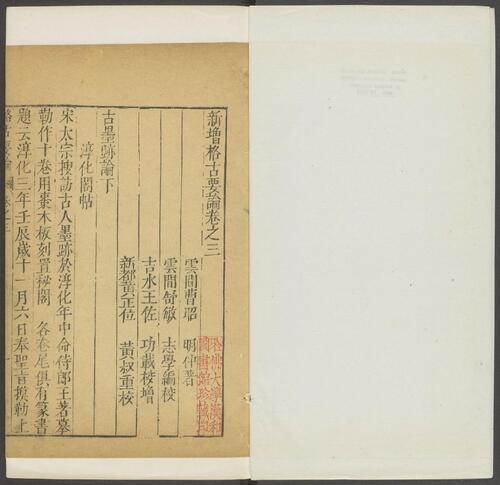 新增格古要論卷之三
雲間曹昭 明仲著
雲間舒敏 志學編校
吉水王佐 功載校增
新都黃正位 黃叔重校
古墨跡論下
淳化閣帖
宋太宗搜訪古人墨跡於淳化年中命侍郎王著摹
勒作十卷用棗木板刻置秘閣 各卷尾俱有篆書
題云淳化三年壬辰歲十一月六日奉聖旨摸勒上
哈佛大學漢和
圖書館珍藏印